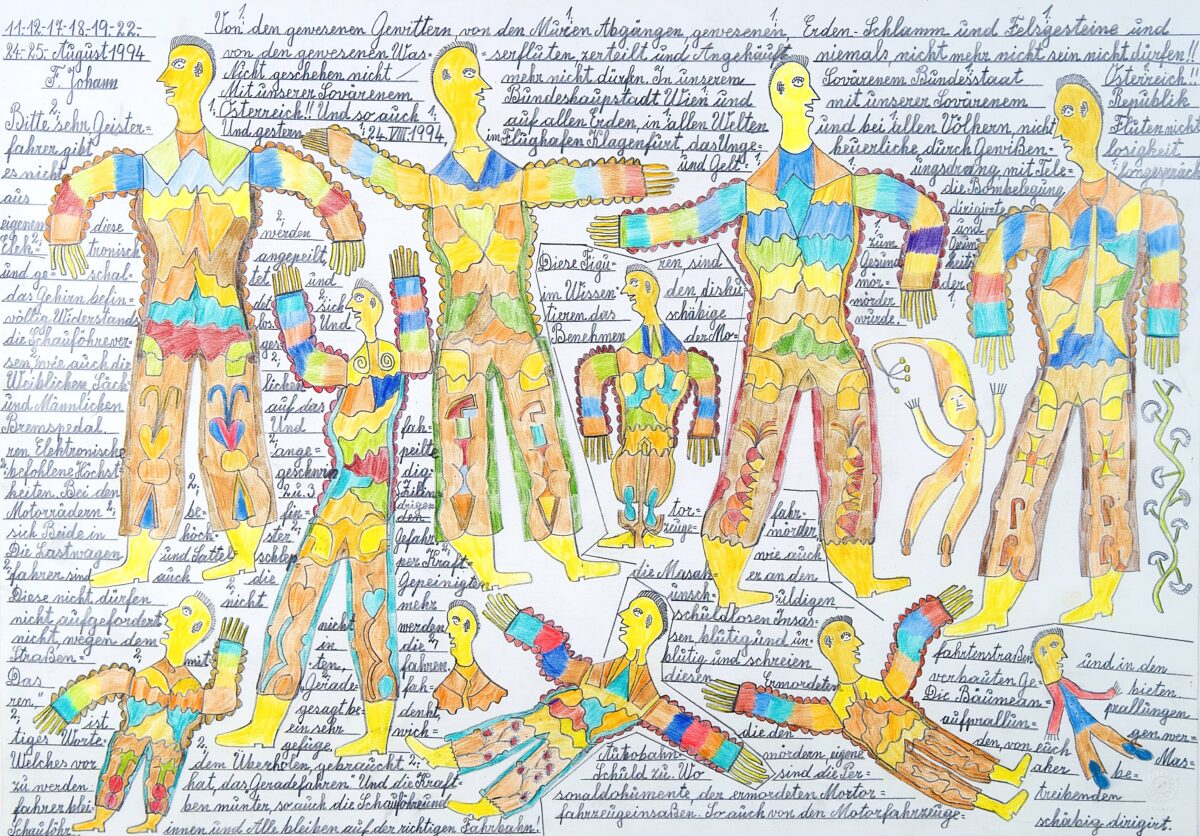 11.-12.-17.-18.-19.-22.-
24.-25. August 1994
F. Johann
1. Von den gewesenen Gewittern, von den Muren Abgängen, gewesenen, Erden-Schlamm und Felsgesteine und
von den gewesenen Was= serfluten zerteilt und Angehäuft niemals, nicht mehr nicht sein nicht dürfen!!
Nicht geschehen nicht mehr nicht dürfen. In unserem Sovärenem Bundesstaat Österreich!!
Mit unserer Sovärenem Bundeshaupstadt Wien und mit unserer Sovärenem Republik
Österreich!! Und so auch auf allen Erden, in allen Welten und bei allen Völkern, nicht Fluten nicht
Und gestern 24. VIII 1994, im Flughafen Klagenfurt, das Unge= heuerliche, durch Gewißen= losigkeit
und Gelt= ungsdrang, mit Tele= fongespräch
die Bombelegung
dirigirte
und
zum Gesund=
Gesund heits
mör= der
mörder
würde.
2. Bitte sehr Geister=
fahrer gibt
es nicht
aus
eigenen diese werden
Elek= tronisch angepeilt,
und ge= schal= tet und
das Gehirn befin= det sich
völlig Widerstands los. Und
die Schauföhrever= ges=
sen wie auch die
Weiblichen Säck= lichen
und Männlichen auf das
Bremspedal. Und fah=
ren Elektronische ange= peilte
befohlene Höchst geschwin dig=
keiten. Bei den 2 u. 3 Zilin
Motorrädern be= fin= drigen
sich Beide in höch= ster Gefahr
Die Lastwagen und Sattel schlep per Kraft=
fahrer sind auch die Gepeinigten
Diese nicht dürfen nicht mehr
nicht aufgefordert nicht werden
nicht, wegen dem in die
Straßen= mit ten, fahren.
Das Gerade= fah=
ren," gesagt be= denkt,
ist ein wich=
tiges Worte= gefüge.
Welches vor dem Überholen gebraucht
zu werden hat, das Geradefahren. Und die Kraft=
fahrer blei= ben munter, so auch die Schauföhre und
Schauföhr= innen und Alle bleiben auf der richtigen Fahrbahn!
Diese Figu= ren, sind
im Wissen den disku=
tieren das schäbige
Benehmen der Mo=
tor= fahr=
zeuge= mörder,
wie auch
die Masak= er an den
unsch= uldigen
schuldlosen Insas=
sen, blutig und un=
blutig und schreien
diesen Ermordeten
die den
Autobahn= mördern eigene
Schuld zu. Wo sind die Per=
sonaldokumente, der ermordeten Mortor=
fahrzeugeinsaßen. So auch von den Motorfahrzeuge=
fahrtenstraßen und in den
verbauten Ge= bieten.
Die Bäumean= prallungen
aufprallun= gen wer=
den, von euch Mas=
aker be= treibenden
schäbig dirigirt.